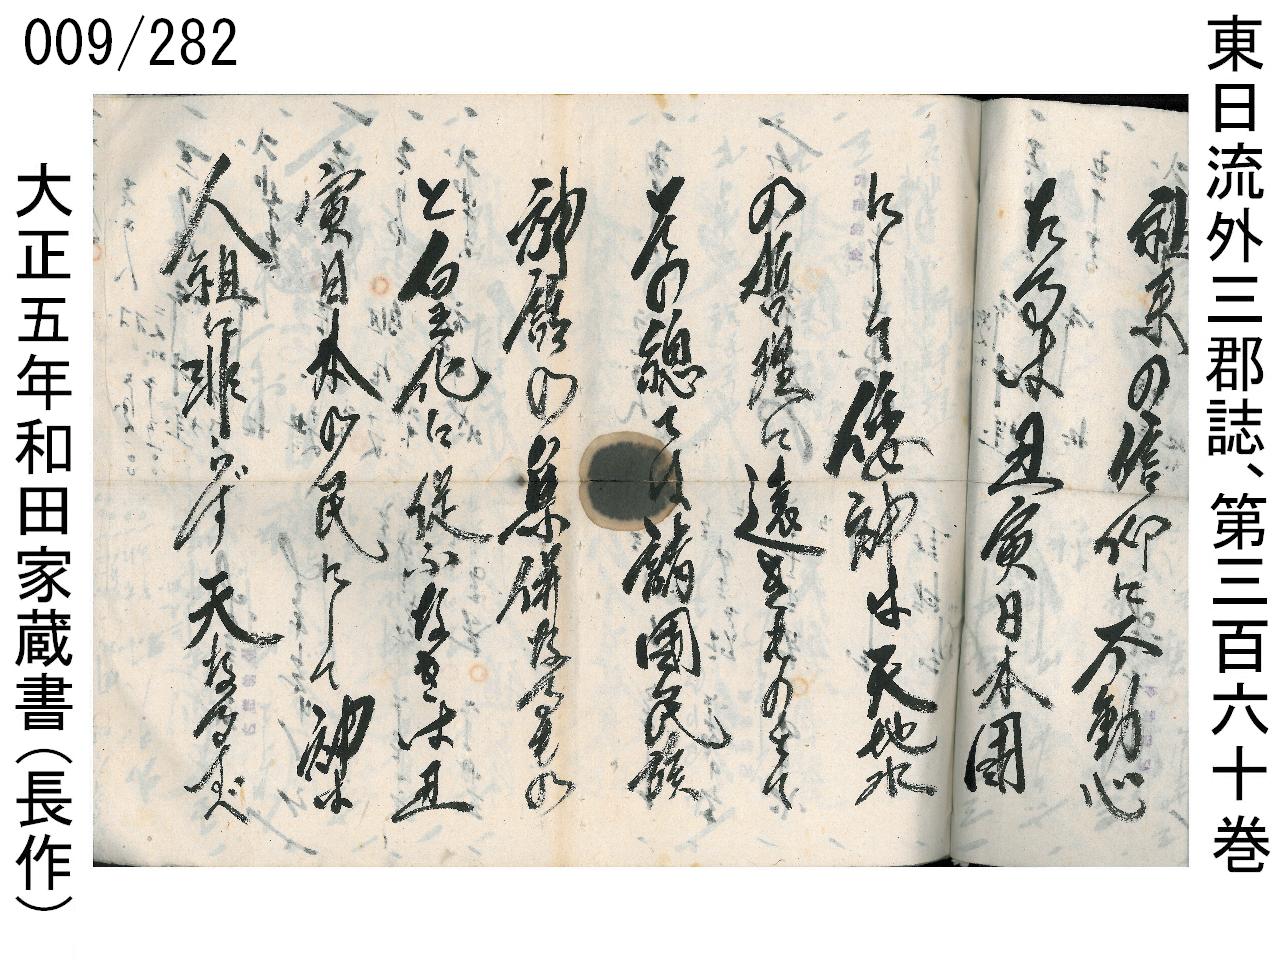 009/282
東日流外三郡誌、第三百六十巻
祖来の信仰に不動心
たるは丑寅日本国
にして倭神は天地水
の哲理に遠きものにて
その総ては諸国民族
神厯の集併なるもの
と白王化に従ふなきは丑
寅日本の民にして神は
人組に非らず天なる
大正五年和田家蔵書(長作)